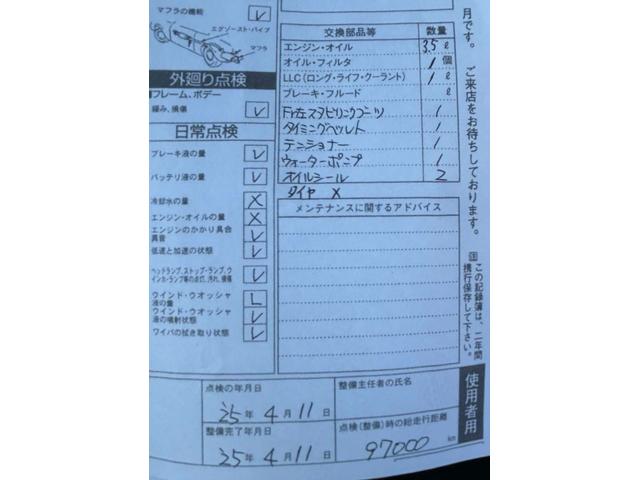 マフラの機能 レ
エグゾースト・パイプ
マフラ
外廻り点検
フレーム、ボデー
緩み、損傷 レ
日常点検
ブレーキ液の量 レ
バッテリ液の量 レ
冷却水の量 X
エンジン・オイルの量 X
エンジンのかかり具合
異音 レ
低速と加速の状態 レ
ヘッドランプ、ストップ・ランプ、ウ
インカ・ランプ等の点灯、汚れ、損傷 レ
ウインド・ウオッシャ
液の量 L
ウインド・ウオッシャ
液の噴射状態 レ
ワイパの拭き取り状態 レ
交換部品等 数量
エンジン・オイル 3.5 ℓ
オイル・フィルタ 1 個
LLC(ロング・ライフ・クーラント) 1 ℓ
ブレーキ・フルード ℓ
Fr左スタビリンクブーツ 1
タイミングベルト 1
テンショナー 1
ウォーターポンプ 1
オイルシール 2
タイヤ X
メンテナンスに関するアドバイス
月です。 ご来店をお待ちしております。
この記録簿は、二年間
携行保存して下さい。
使用者用
点検の年月日
'25年 4月 11日
整備主任者の氏名
整備完了年月日
'25年 4月 11日
点検(整備)時の総走行距離
97000 km